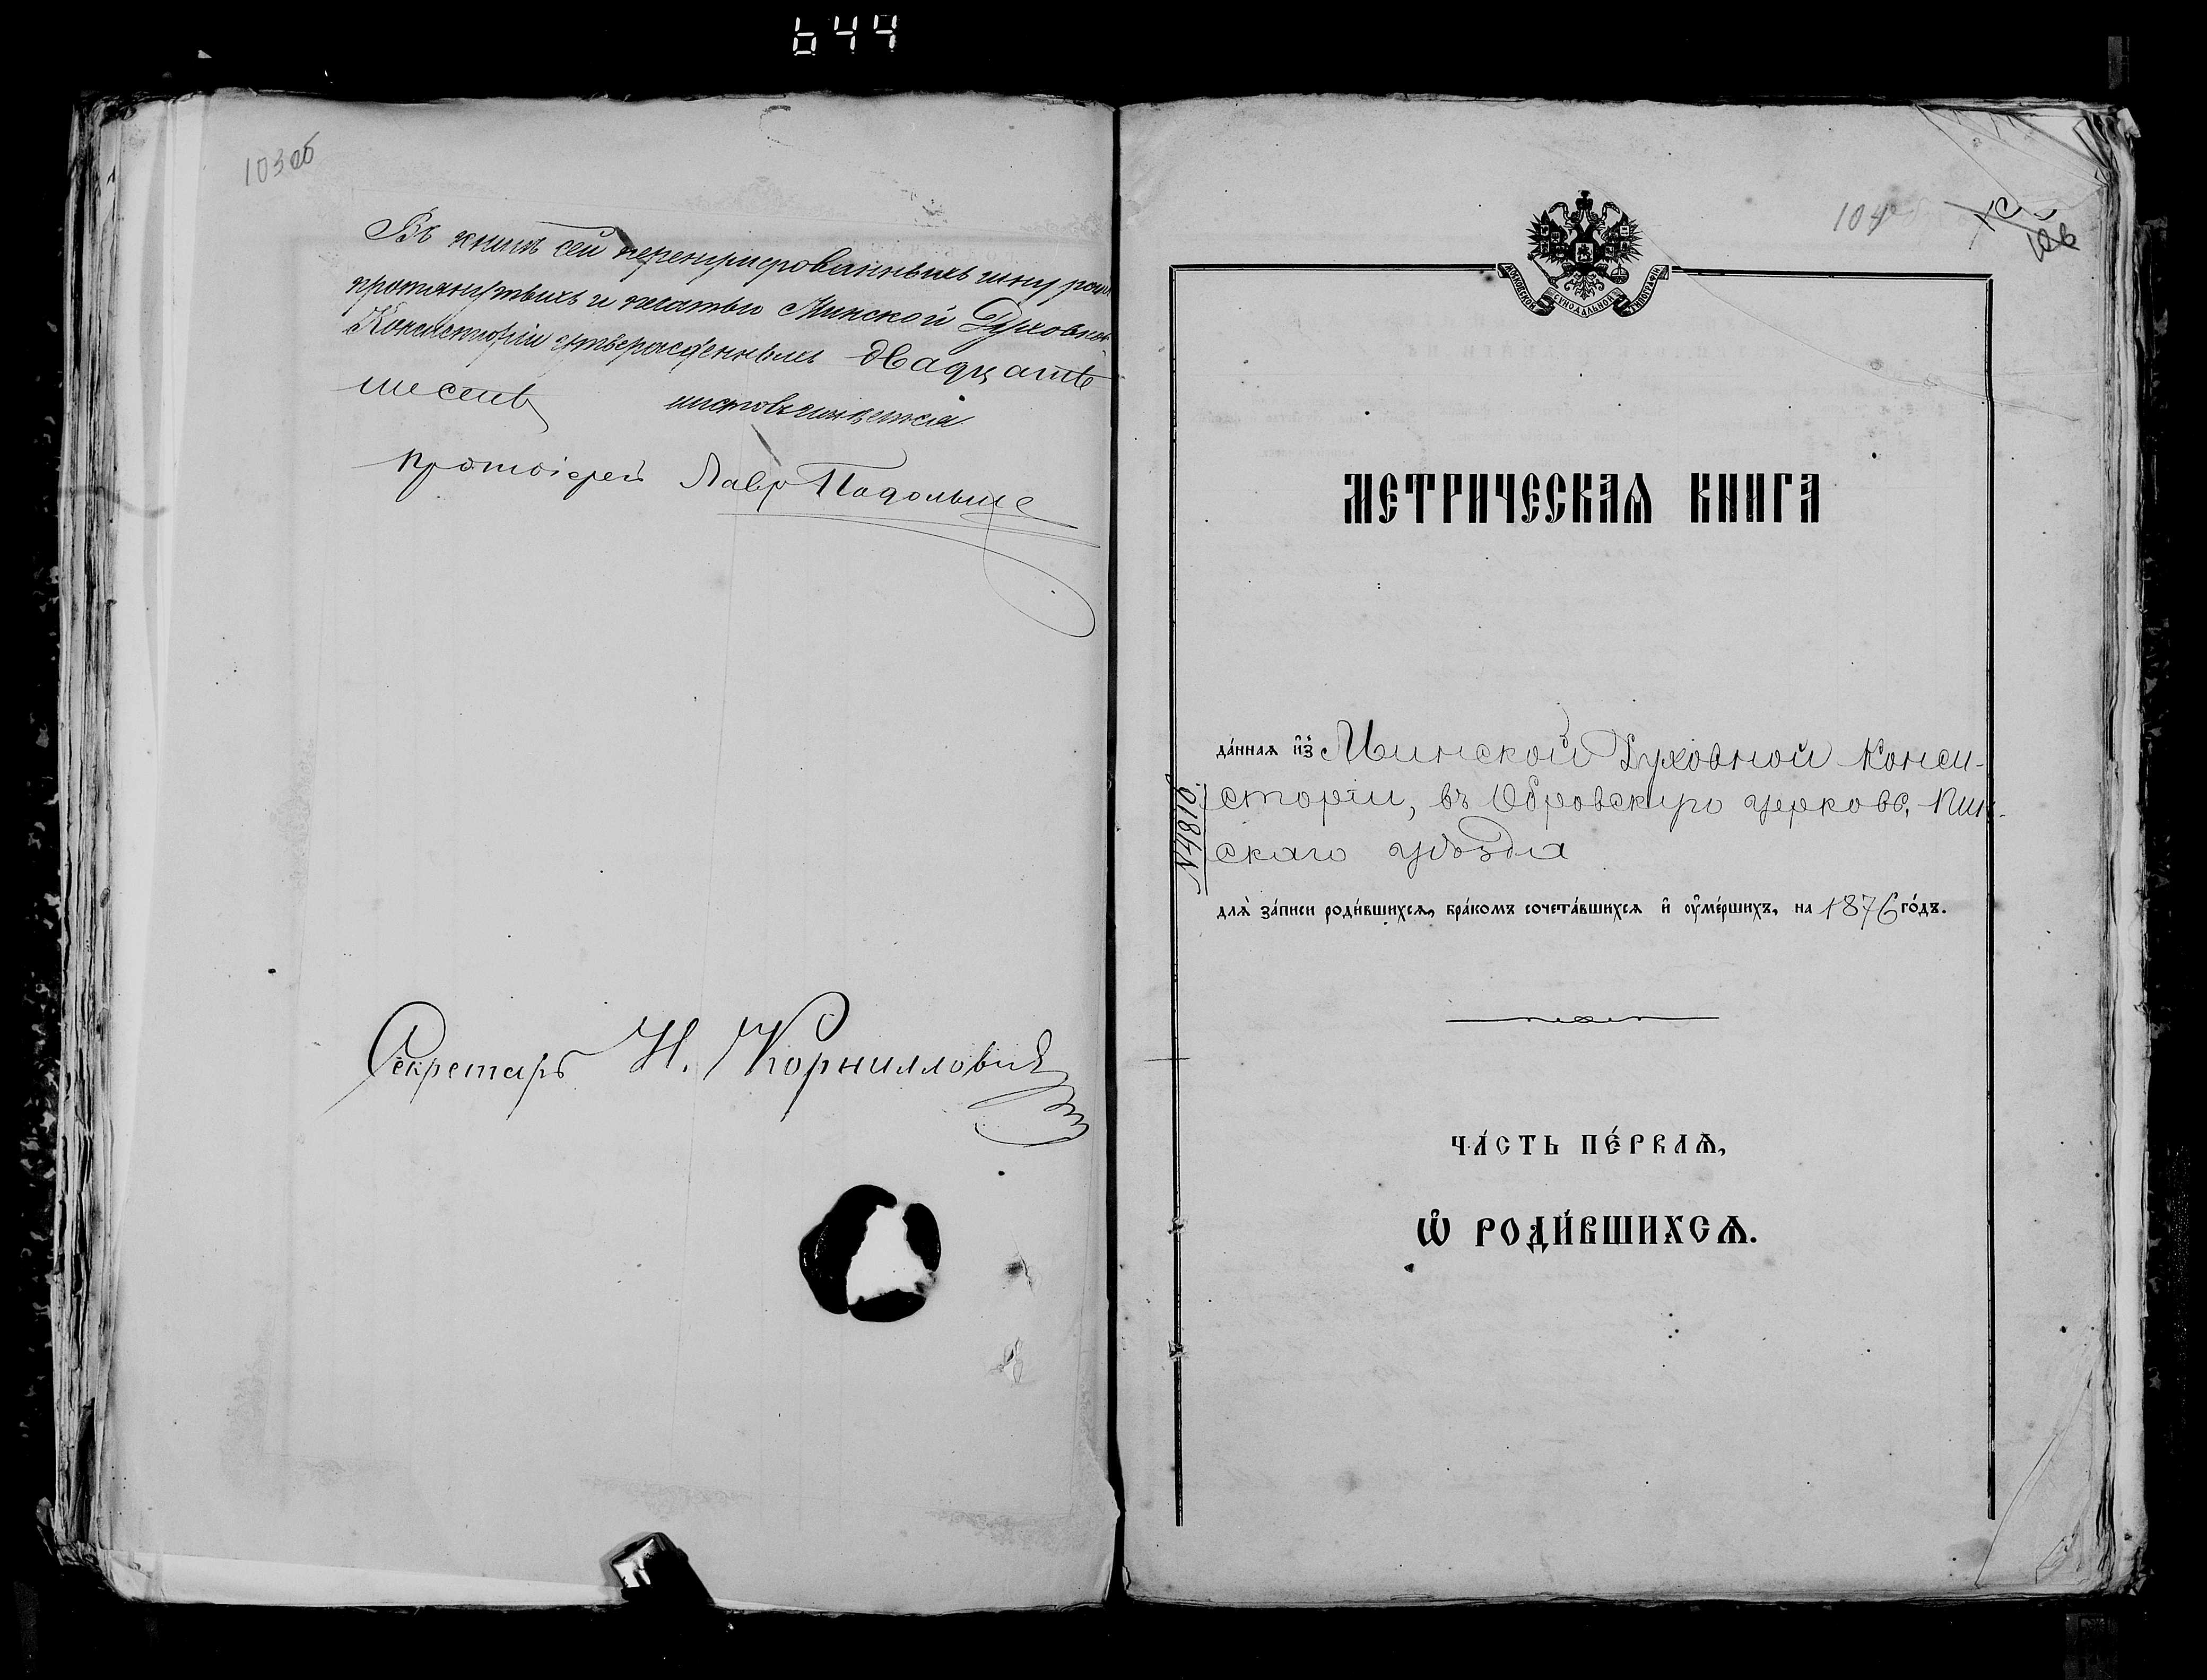 644
103об
Въ книгѣ сей перенумерованныхъ шнуромъ
протянутыхъ и печатью Минской Духовной
Консисторіи утвержденныхъ двадцать
шесть листовъ имѣется
Протоіерей Лавр Подольше
Секретарь Н. Корниллович
104
106
МОСКОВСКОЙ СѴНОДАЛЬНОЙ ТИПОГРАФІИ
МЕТРИЧЕСКАѦ КНИГА
да́нная и҆з̾ Минской Духовной Конси-
сторіи, въ Обровскую церковь, Пин-
скаго уѣзда
№4810
длѧ̀ за́писи роди́вшихсѧ, бра́комъ сочета́вшихсѧ и҆ оу҆ме́ршихъ, на 1876 го́дъ.
ЧА́СТЬ ПЕ́РВАѦ,
Ѡ҆ РОДИ́ВШИХСѦ.